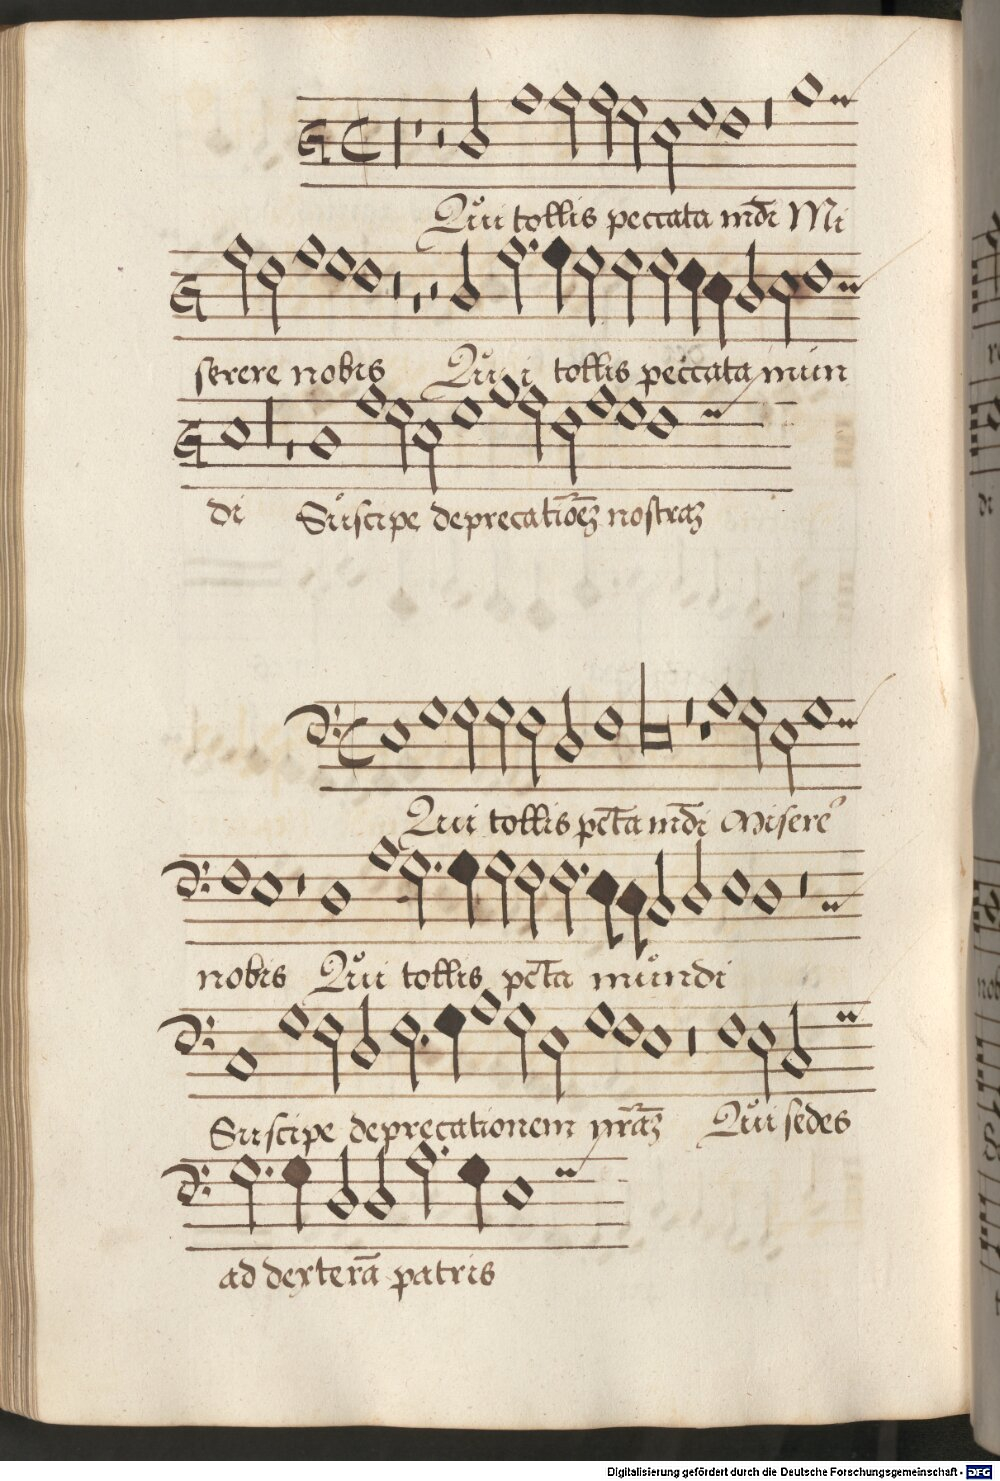 Qui tollis peccata mūdi Mi
serere nobis Qui tollis peccata mun
di
Suscipe deprecatiōēꝫ nostraꝫ
Qui tollis pctā mūdi Misere
nobis Qui tollis pctā mundi
Suscipe deprecationem nr̄aꝫ Qui sedes
ad dexterā patris
Digitalisierung gefördert durch die Deutsche Forschungsgemeinschaft - DFG